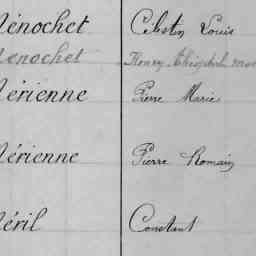 Ménochet Célestin Louis
Menochet Henry
Mérienne Pierre Marie
Mérienne Pierre Romain
Méril Constant